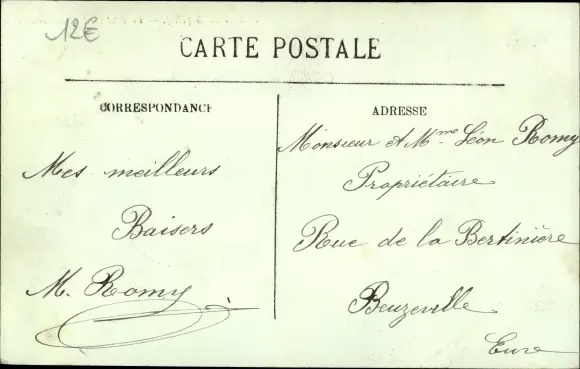 12€
CARTE POSTALE
CORRESPONDANCE
Mes meilleurs
Baisers
M. Romy
ADRESSE
Monsieur et Mme Léon Romy
Propriétaire
Rue de la Bertinière
Beuzeville
Eure